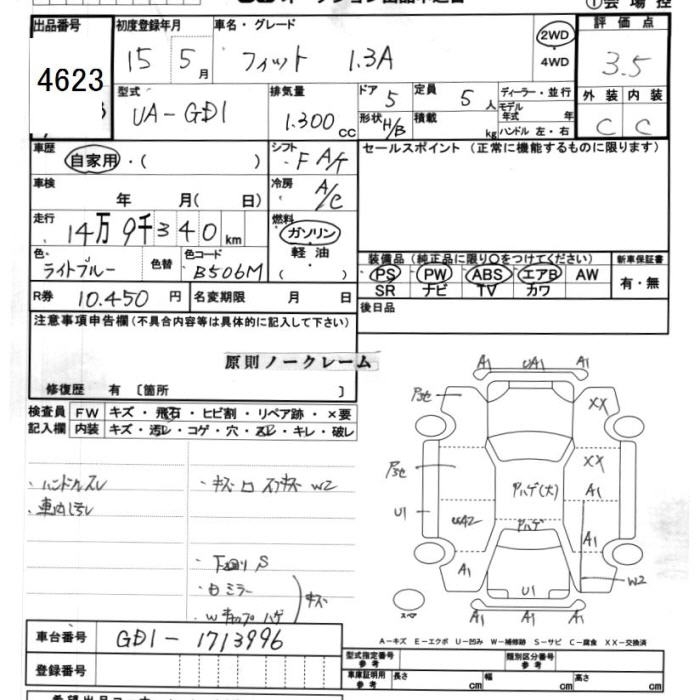 出品番号
4623
初度登録年月
15 5月
車名・グレード
フィット 1.3A
2WD
4WD
①会場控
評価点
3.5
外装 内装
C C
型式
UA-GD1
排気量
1.300cc
ドア 5
形状 H/B
定員 5人
積載 kg
ディーラー・並行
モデル年式 年
ハンドル 左・右
車歴
自家用・( )
シフト
F A/T
セールスポイント(正常に機能するものに限ります)
車検
年 月( 日)
冷房
A/C
走行
14万9千340km
燃料
ガソリン
軽油
( )
色
ライトブルー
色替
色コード
B506M
装備品(純正品に限り○をつけてください)
PS PW ABS エアB AW
SR ナビ TV カワ
新車保証書
有・無
R券 10.450円
名変期限 月 日
後日品
注意事項申告欄(不具合内容等は具体的に記入して下さい)
原則ノークレーム
修復歴 有〔箇所 〕
検査員記入欄
FW キズ・飛石・ヒビ割・リペア跡・×要
内装 キズ・汚レ・コゲ・穴・スレ・キレ・破レ
・ハンドルスレ
・車内汚レ
・下廻リ S
・ミラー
キズ
W2
A1 UA1 A1
XX
XX
A1
A1
W2
アハゲ(大)
アハゲ
U1
A1
U1
A1 A1 A1
スペア
A-キズ E-エクボ U-凹み W-補修跡 S-サビ C-腐食 XX-交換済
車台番号
GD1-1713996
登録番号
型式指定番号
参考
類別区分番号
参考
車庫証明用
参考
長さ cm
幅 cm
高さ cm